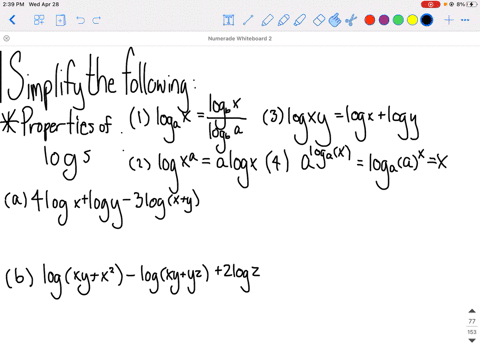 2:39 PM Wed Apr 28
8%
Numerade Whiteboard 2
Simplify the following:
*Properties of logs:
(1) logₐx = log_b x / log_b a
(3) logxy = logx + logy
(2) log xᵃ = a logx
(4) a^(logₐ(x)) = logₐ(a)ˣ = x
(a) 4logx + logy - 3log(x+y)
(b) log(xy+x²) - log(xy+yz) + 2logz
77
153